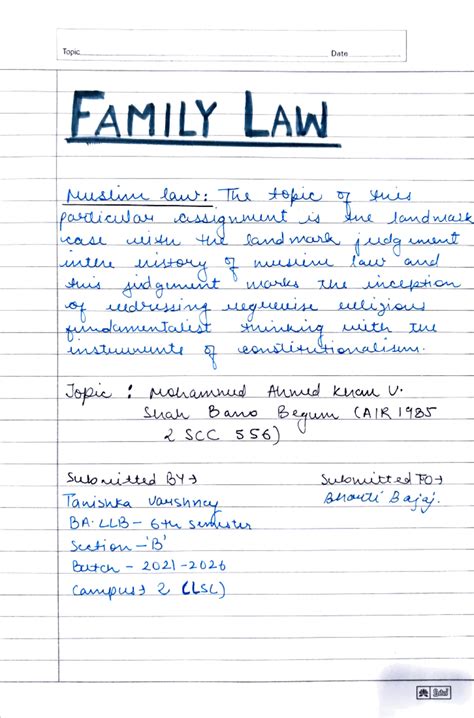 Topic Date
FAMILY LAW
Muslim law: The topic of this
particular assignment is the landmark
case with the landmark judgment
in the history of muslim law and
this judgment marks the inception
of redressing regressive religious
fundamentalist thinking with the
instruments of constitutionalism.
Topic : Mohammed Ahmed Khan V.
Shah Bano Begum (AIR 1985
2 SCC 556)
Submitted BY→ Submitted TO→
Tanishka Varshney Bharti Bajaj.
BA.LLB - 6th Semester
Section - 'B'
Batch - 2021-2026
Campus → 2 (LSL)